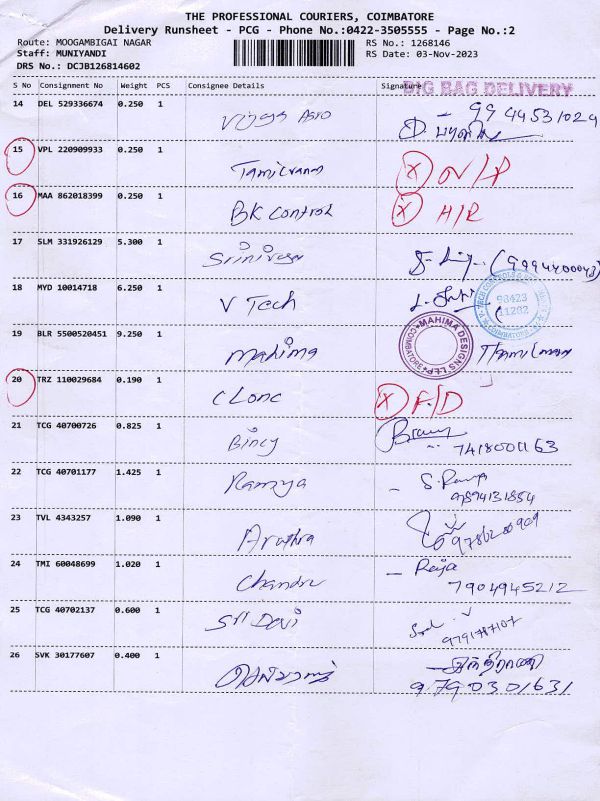 THE PROFESSIONAL COURIERS, COIMBATORE
Delivery Runsheet - PCG - Phone No.:0422-3505555 - Page No.:2
Route: MOOGAMBIGAI NAGAR RS No.: 1268146
Staff: MUNIYANDI RS Date: 03-Nov-2023
DRS No.: DCJB126814602
BIG BAG DELIVERY
S No Consignment No Weight PCS Consignee Details Signature
14 DEL 529336674 0.250 1 9944531029
15 VPL 220909933 0.250 1 Tamilvanan X
16 MAA 862018399 0.250 1 BK Control X
17 SLM 331926129 5.300 1 Srinivasa (9994400043)
18 MYD 10014718 6.250 1 V Tech
98423
11202
COIMBATORE
19 BLR 5500520451 9.250 1 Mahima
MAHIMA DESIGNS LLP
COIMBATORE
20 TRZ 110029684 0.190 1 Clone X F/D
21 TCG 40700726 0.825 1 Bincy
7418001163
22 TCG 40701177 1.425 1 Ramya S. Ramya
9894131854
23 TVL 4343257 1.090 1 Arathra
24 TMI 60048699 1.020 1 Chandru Raja
7904945212
25 TCG 40702137 0.600 1 Sri Devi
9791787107
26 SVK 30177607 0.400 1
9790301631